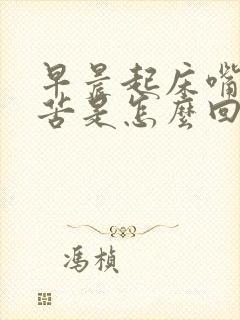 早晨起床嘴
苦是怎麼回
馮楨